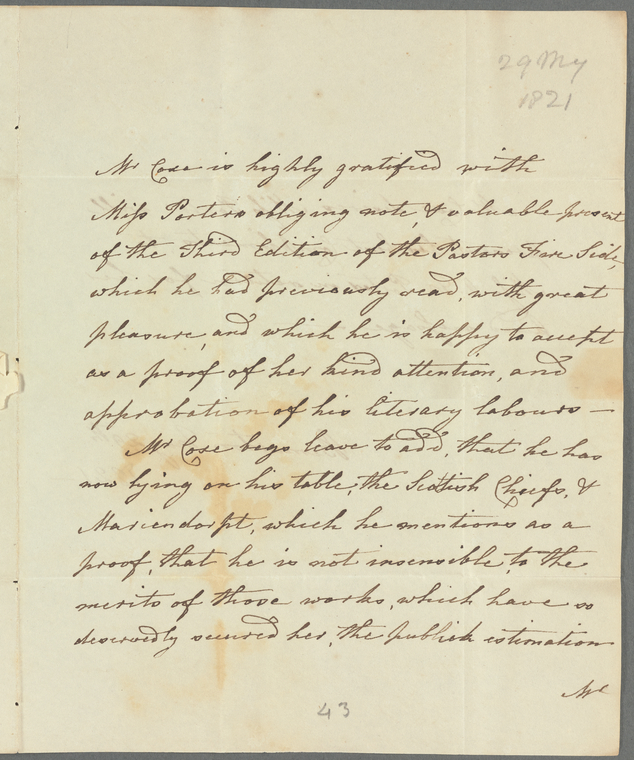 29 My
1821
Mr Coxe is highly gratified with
Miss Porters obliging note, & valuable present
of the Third Edition of the Pastors Fire Side,
which he had previously read, with great
pleasure, and which he is happy to accept
as a proof of her kind attention, and
approbation of his literary labours —
Mr Coxe begs leave to add, that he has
now lying on his table, the Scottish Chiefs, &
Mariendorpt, which he mentions as a
proof, that he is not insensible to the
merits of those works, which have so
deservedly secured her, the publick estimation
Mr
43